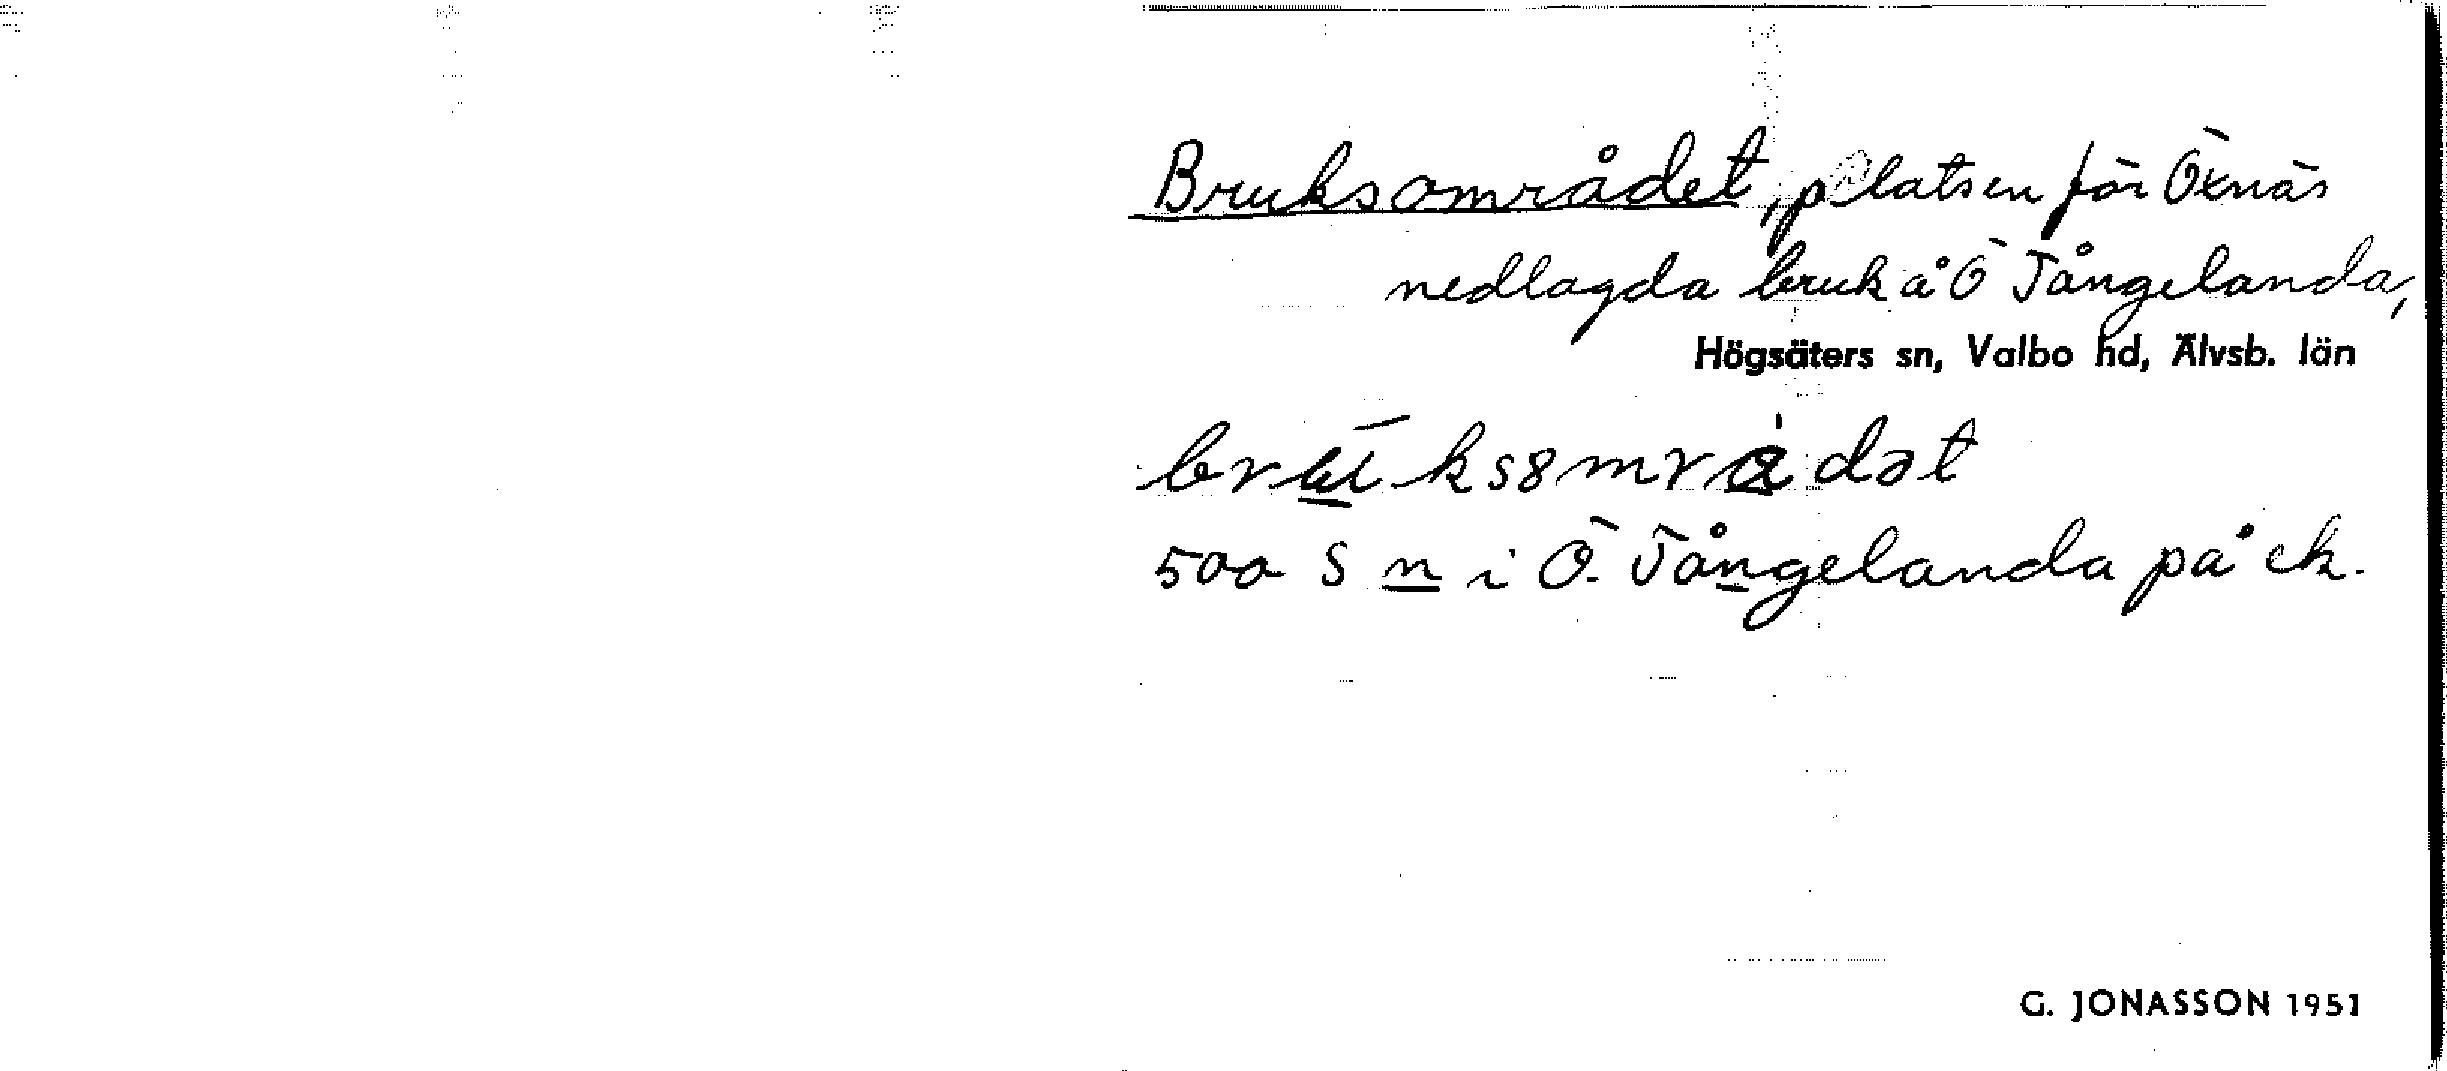 Bruksområdet, platsen för Öxnäs
nedlagda bruk å Ö Tångelanda,
Högsäters sn, Valbo hd, Älvsb. län
500 S n i Ö. Tångelanda på ek.
G. JONASSON 1951